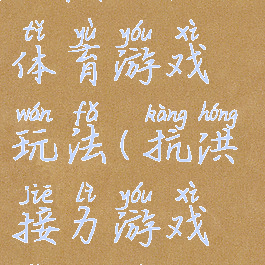 tǐ yù yóu xì
体育游戏
wán fǎ kàng hóng
玩法(抗洪
jiē lì yóu xì
接力游戏